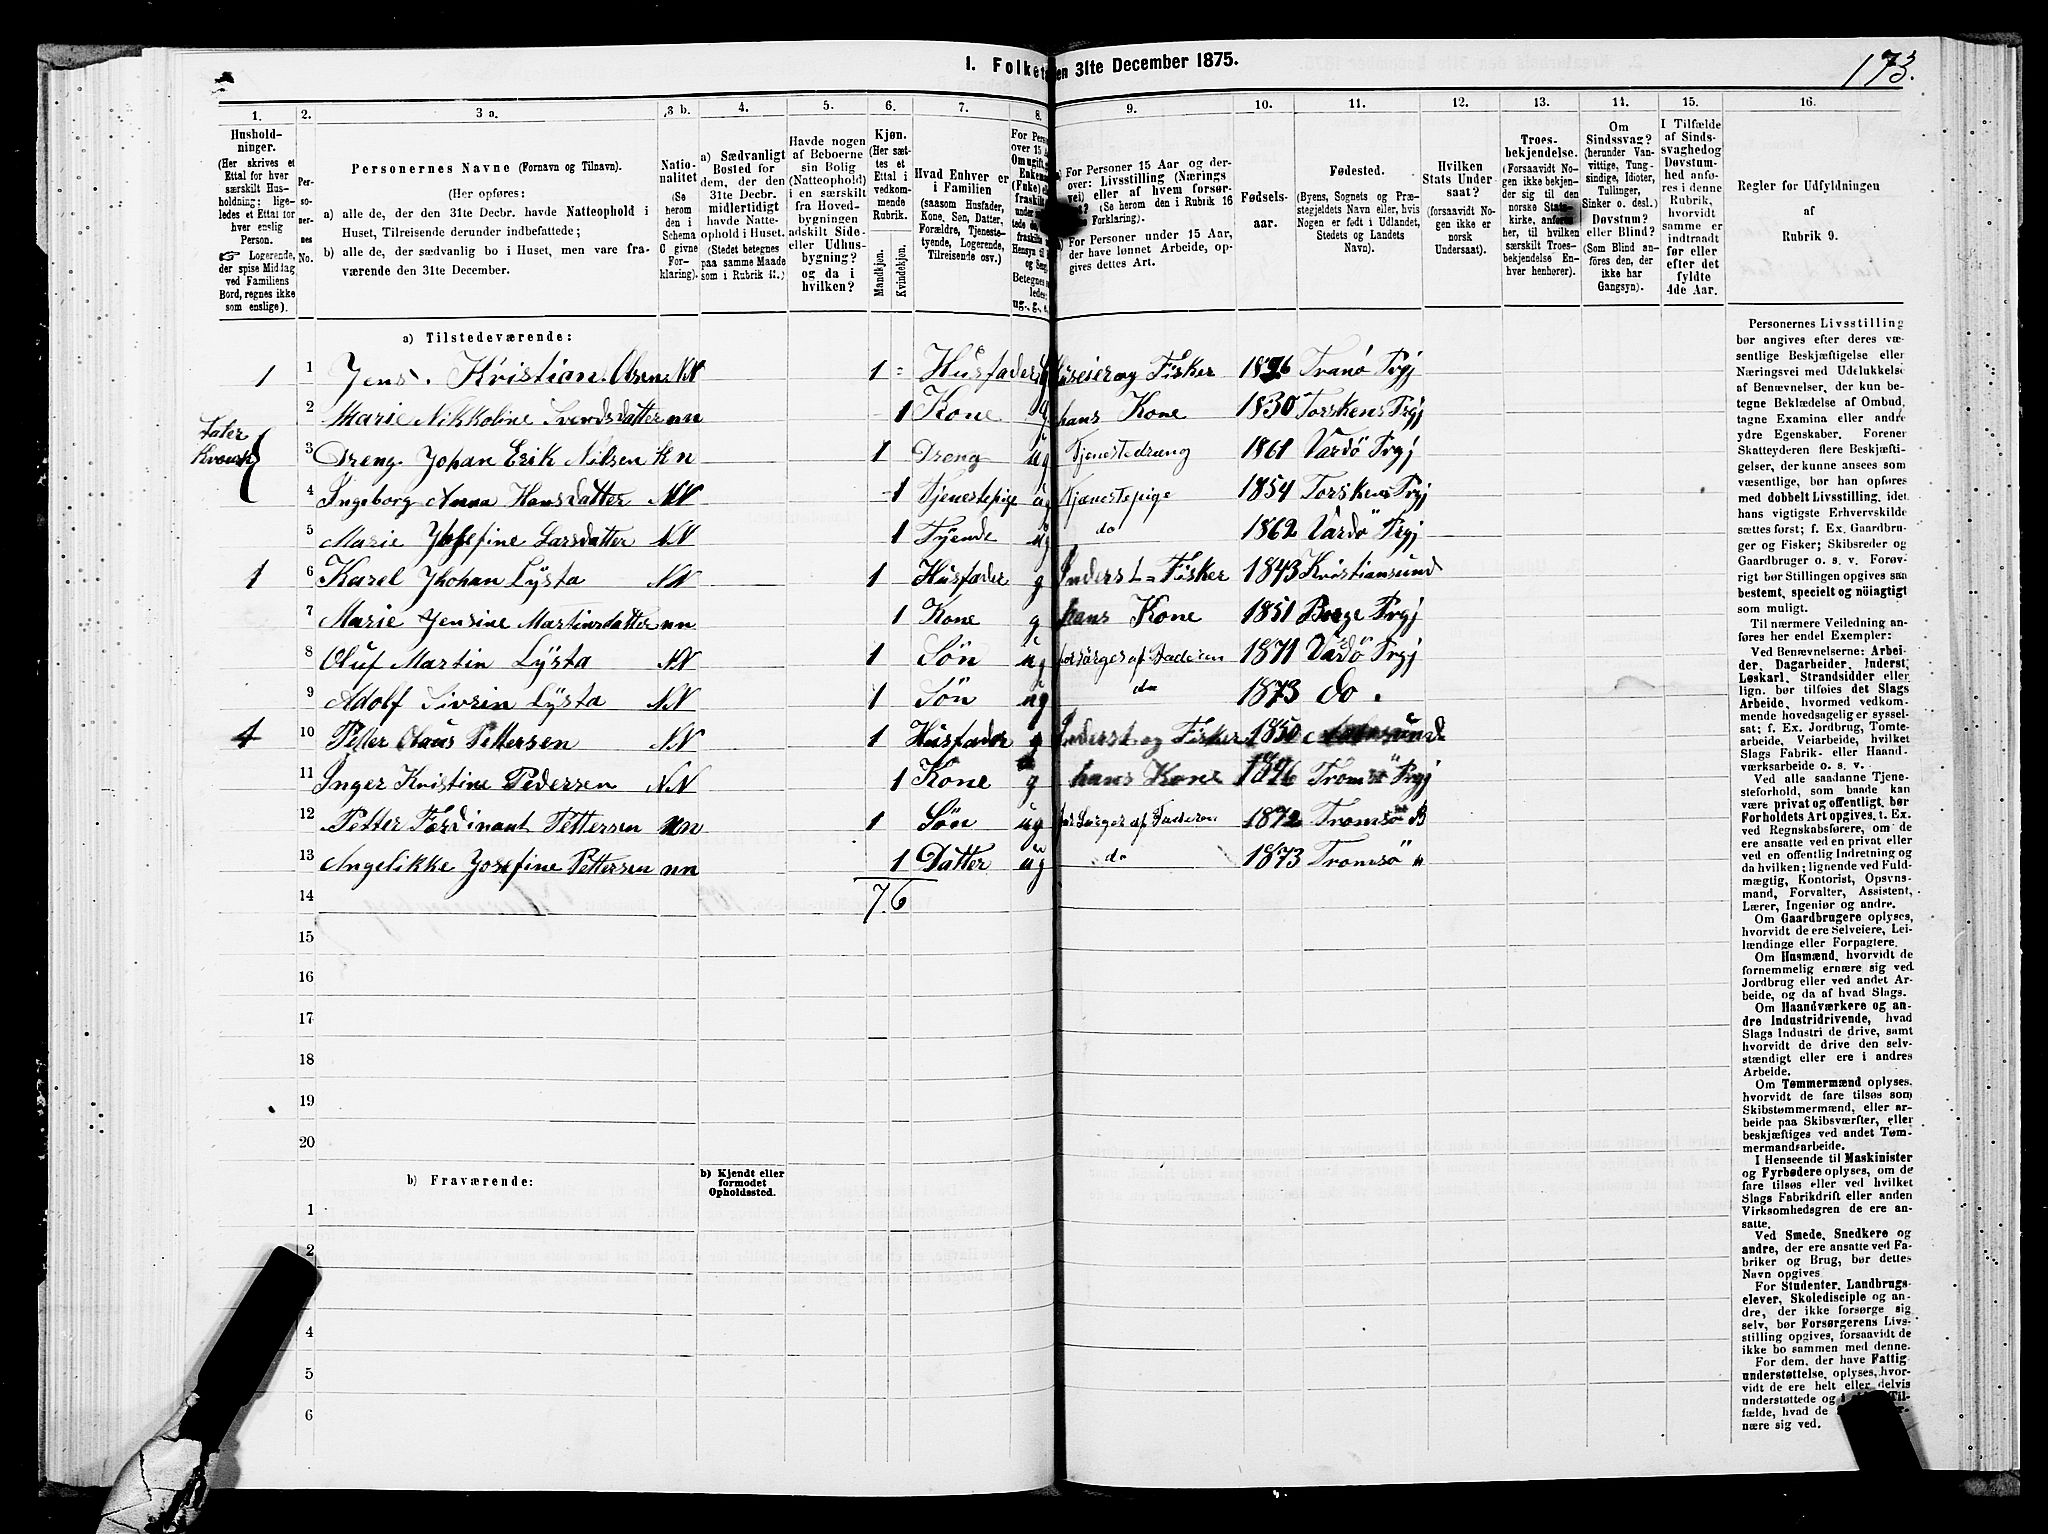 I. Folket en 31te December 1875.
173.
1. 2. 3 a. 3 b. 4. 5. 6. 7. 8. 9. 10. 11. 12. 13. 14. 15. 16.
Hushold-
ninger.
(Her skrives et
Ettal for hver
særskilt Hus-
holdning; lige-
ledes et Ettal for
hver enslig
Person.
☞ Logerende,
der spise Middag
ved Familiens
Bord, regnes ikke
som enslige).
Per-
so-
ner-
nes
No.
Personernes Navne (Fornavn og Tilnavn).
(Her opføres:
a) alle de, der den 31te Decbr. havde Natteophold i
Huset, Tilreisende derunder indbefattede;
b) alle de, der sædvanlig bo i Huset, men vare fra-
værende den 31te December.
Natio-
nalitet
(Se
herom
den i
Schema
C givne
For-
klaring).
a) Sædvanligt
Bosted for
dem, der den
31te Decbr.
midlertidigt
havde Natte-
ophold i Huset.
(Stedet betegnes
paa samme Maade
som i Rubrik 11.)
Havde nogen
af Beboerne
sin Bolig
(Natteophold)
i en særskilt
fra Hoved-
bygningen
adskilt Side-
eller Udhus-
bygning?
og da i
hvilken?
Kjøn.
(Her sæt-
tes et
Ettal i
vedkom-
mende
Rubrik.
Mandkjøn.
Kvindekjøn.
Hvad Enhver er
i Familien
(saasom Husfader,
Kone, Søn, Datter,
Forældre, Tjeneste-
tyende, Logerende,
Tilreisende osv.)
For Personer 15 Aar og der-
over: Livsstilling (Nærings
vei) eller af hvem forsør-
get? (Se herom den i Rubrik 16
Forklaring).
b) For Personer under 15 Aar,
der have lønnet Arbeide, op-
gives dettes Art.
Fødsels-
aar.
Fødested.
(Byens, Sognets og Præ-
stegjeldets Navn eller, hvis
Nogen er født i Udlandet,
Stedets og Landets
Navn).
Hvilken
Stats Under
saat?
(forsaavidt No-
gen ikke er
norsk
Undersaat).
Troes-
bekjendelse.
(Forsaavidt No-
gen ikke bekjen-
der sig til den
norske Stats-
kirke, anføres
her, til hvilken
særskilt Troes-
bekjendelse En-
hver henhører).
Om
Sindssvag?
(herunder Van-
vittige, Tung-
sindige, Idioter,
Tullinger,
Sinker o. desl.)
Døvstum?
eller Blind?
(Som Blind an-
føres den, der
ikke har
Gangsyn).
I Tilfælde
af Sinds-
svaghed og
Døvstum-
hed anfø-
res i denne
Rubrik,
hvorvidt
samme er
indtraadt
før eller
efter det
fyldte
4de Aar.
Regler for Udfyldningen
af
Rubrik 9.
a) Tilstedeværende:
1 1 Jens. Kristian Olsen NN 1 Husfader Huseier og Fisker 1826 Tranö Prgj
2 Marie Nikkoline Svendsdatter nn 1 Kone g hans Kone 1830 Torskens Prgj
Taler
Kvensk
3 Dreng. Johan Erik Nilsen K n 1 Dreng ug Tjenestedreng 1861 Vardö Prgj
4 Ingeborg Anna Hansdatter NN 1 Tjenestepige ug Tjenestepige 1854 Torskens Prgj
5 Marie Josefine Larsdatter NN 1 Tyende ug do 1862 Vardö Prgj
1 6 Karel Jhohan Lysta NN 1 Husfader g Inderst = Fisker 1843 Kristiansund
7 Marie Jensine Martinsdatter nn 1 Kone g hans Kone 1851 Borge Prgj
8 Oluf Martin Lysta NN 1 Sön ug forsörges af Faderen 1871 Vardö Prgj
9 Adolf Sivrin Lysta NN 1 Sön ug do 1873 do.
4 10 Petter Olaus Pettersen NN 1 Husfader g Inderst og Fisker 1850
11 Inger Kristine Pedersen NN 1 Kone g hans Kone 1846 Tromsö Prgj
12 Petter Ferdinant Pettersen nn 1 Sön ug forsörges af Faderen 1872 Tromsö B
13 Angelikke Josefine Pettersen nn 1 Datter ug do 1873 Tromsö "
14 7. 6
15
16
17
18
19
20
b) Fraværende:
b) Kjendt eller
formodet
Opholdssted.
1
2
4
5
6
Personernes Livsstilling
bør angives efter deres væ-
sentlige Beskjæftigelse eller
Næringsvei med Udelukkelse
af Benævnelser, der kun be-
tegne Beklædelse af Ombud,
tagne Examina eller andre
ydre Egenskaber. Forener
Skatteyderen flere Beskjæfti-
gelser, der kunne ansees som
væsentlige, bør han opføres
med dobbelt Livsstilling, idet
hans vigtigste Erhvervskilde
sættes først; f. Ex. Gaardbru-
ger og Fisker; Skibsreder og
Gaardbruger o. s. v. Forøv-
rigt bør Stillingen opgives saa
bestemt, specielt og nøiagtigt
som muligt.
Til nærmere Veiledning an-
føres her endel Exempler:
Ved Benævnelserne: Arbei-
der, Dagarbeider, Inderst,
Løskarl, Strandsidder eller
lign. bør tilføies det Slags
Arbeide, hvormed vedkom-
mende hovedsagelig er syssel-
sat; f. Ex. Jordbrug, Tomte-
arbeide, Veiarbeide, hvilket
Slags Fabrik- eller Haand-
værksarbeide o. s. v.
Ved alle saadanne Tjene-
steforhold, som baade kan
være privat og offentligt, bør
Forholdets Art opgives, t. Ex.
ved Regnskabsførere, om de
ere ansatte ved en privat eller
ved en offentlig Indretning og
da hvilken; lignende ved Fuld-
mægtig, Kontorist, Opsyns-
mand, Forvalter, Assistent,
Lærer, Ingeniør og andre.
Om Gaardbrugere oplyses,
hvorvidt de ere Selveiere, Lei-
lændinge eller Forpagtere.
Om Husmænd, hvorvidt de
fornemmelig ernære sig ved
Jordbrug eller ved andet Ar-
beide, og da af hvad Slags.
Om Haandværkere og an-
dre Industridrivende, hvad
Slags Industri de drive, samt
hvorvidt de drive den selv-
stændigt eller ere i andres
Arbeide.
Om Tømmermænd oplyses,
hvorvidt de fare tilsøs som
Skibstømmermænd, eller ar-
beide paa Skibsværfter, eller
beskjæftiges ved andet Tøm-
mermandsarbeide.
I Henseende til Maskinister
og Fyrbødere oplyses, om de
fare tilsøs eller ved hvilket
Slags Fabrikdrift eller anden
Virksomhedsgren de ere an-
satte.
Ved Smede, Snedkere og
andre, der ere ansatte ved Fa-
briker og Brug, bør dettes
Navn opgives.
For Studenter, Landbrugs-
elever, Skoledisciple og an-
dre, der ikke forsørge sig
selv, bør Forsørgerens Livs-
stilling opgives, forsaavidt de
ikke bo sammen med denne.
For dem, der have Fattig-
understøttelse, oplyses, hvor-
vidt de ere helt eller delvis
understøttede og i Til-
fælde, hvad de
nære sig ved.